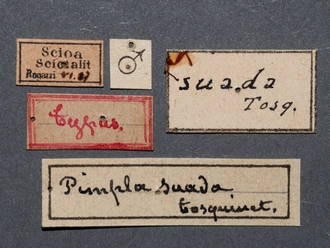 Scioa
Scietalit
Ragazzi VI.87
♂
suada
Tosq.
Typus.
Pimpla suada
Tosquinet.